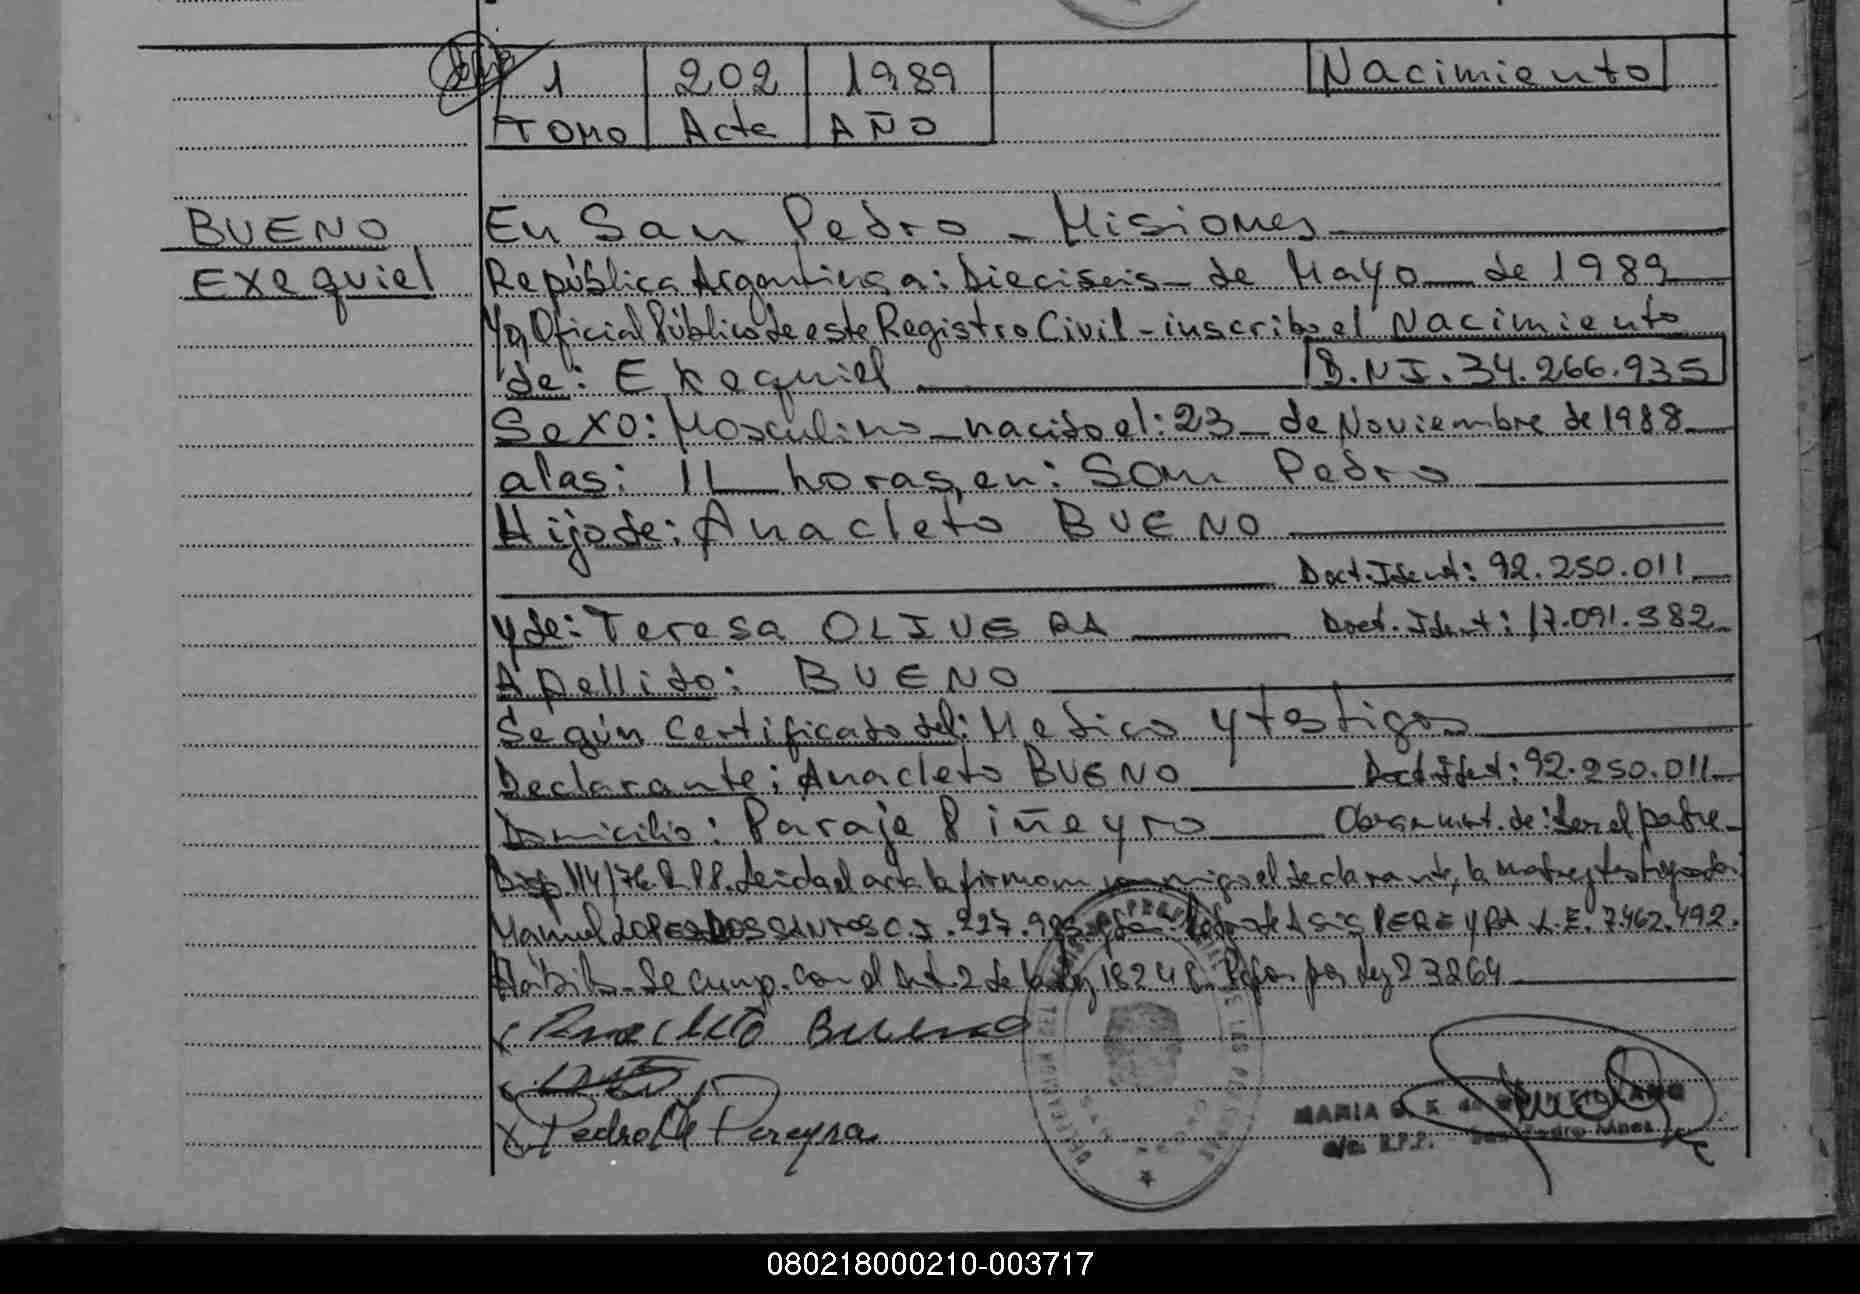 1 202 1989 Nacimiento
TOMO Acta AÑO
BUENO En San Pedro - Misiones
Exequiel República Argentina: Dieciseis - de Mayo de 1989
Yo, Oficial Público de este Registro Civil - inscribo el Nacimiento
de: Exequiel D.N.I. 34.266.935
Sexo: Masculino - nacido el: 23 - de Noviembre de 1988
a las: 11 horas, en: San Pedro
Hijo de: Anacleto BUENO
Doct. Ident: 92.250.011
y de: Teresa OLIVERA Doct. Ident: 17.091.382
Apellido: BUENO
Según Certificado del: Medico y testigos
Declarante: Anacleto BUENO Doct. Ident: 92.250.011
Domicilio: Paraje Piñeyro Obra en virt. de: Ser el padre
Disp 114/76. Leida el acta la firman conmigo el declarante, la madre y testigos
Manuel LOPES DOS SANTOS C.I. PEREYRA L.E. 7.462.492.
Se cump. con el Art. 2 de la Ley 18248 por Ley 23264
x Anacleto Bueno
x
x Pedro de Pereyra
MARIA
San Pedro Mnes
080218000210-003717